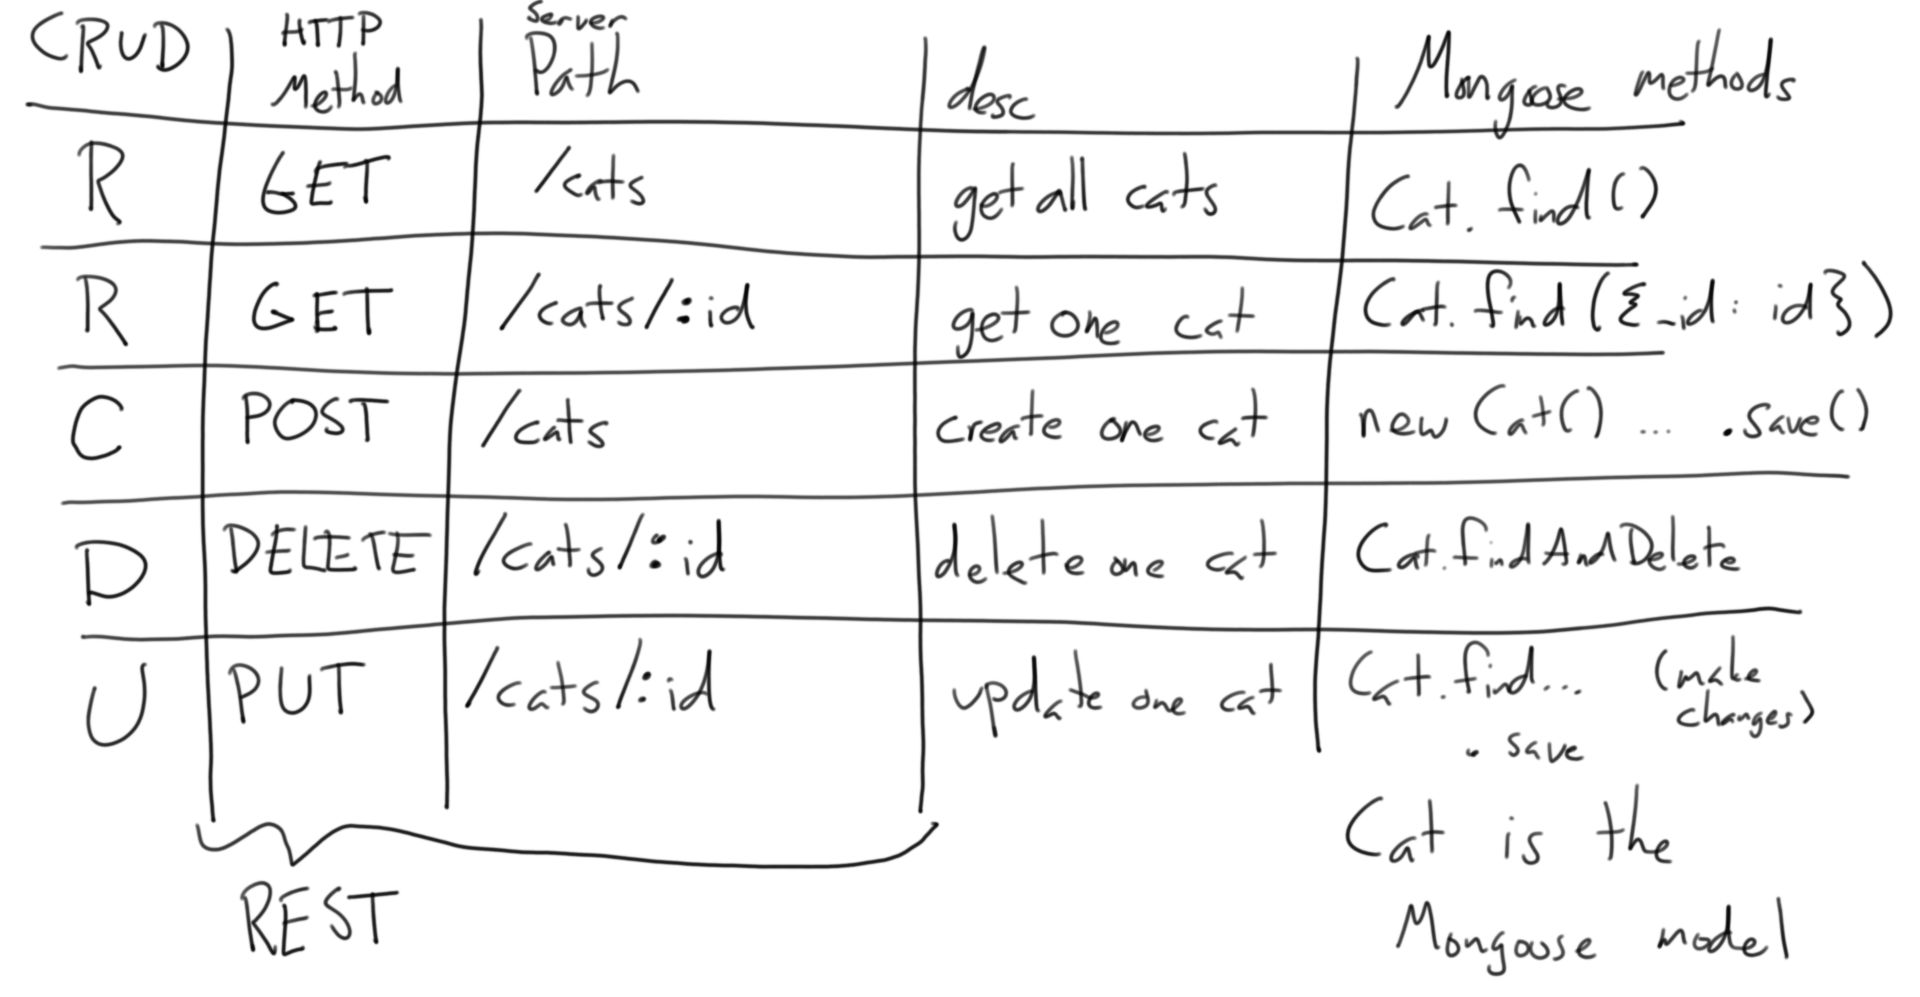 CRUD HTTP Method Server Path desc Mongoose methods
R GET /cats get all cats Cat.find()
R GET /cats/:id get one cat Cat.find({_id: id})
C POST /cats create one cat new Cat() ... .save()
D DELETE /cats/:id delete one cat Cat.findAndDelete
U PUT /cats/:id update one cat Cat.find... (make changes)
.save
REST
Cat is the
Mongoose model